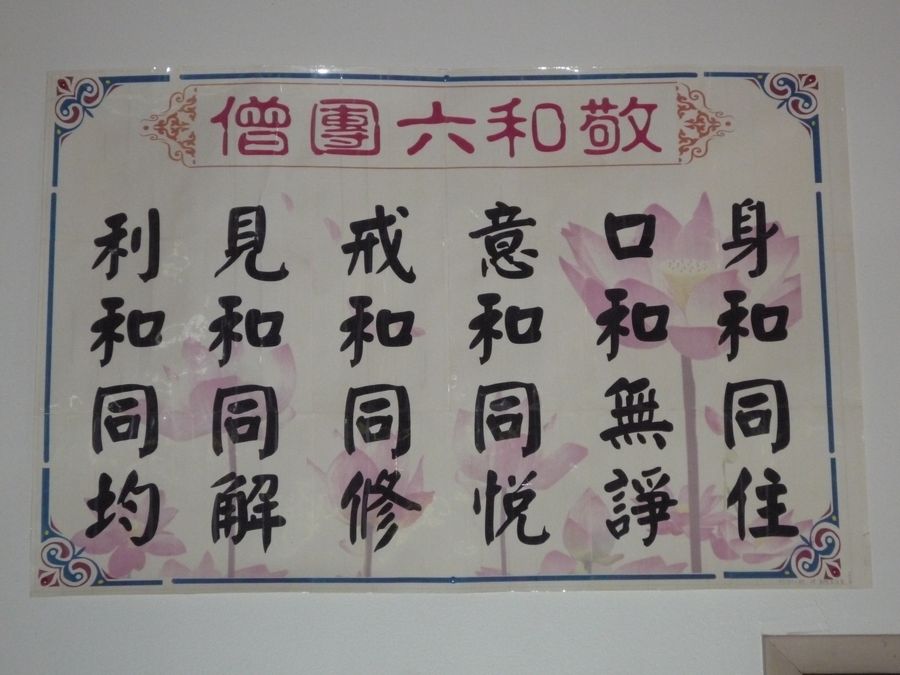 僧團六和敬
身和同住
口和無諍
意和同悅
戒和同修
見和同解
利和同均